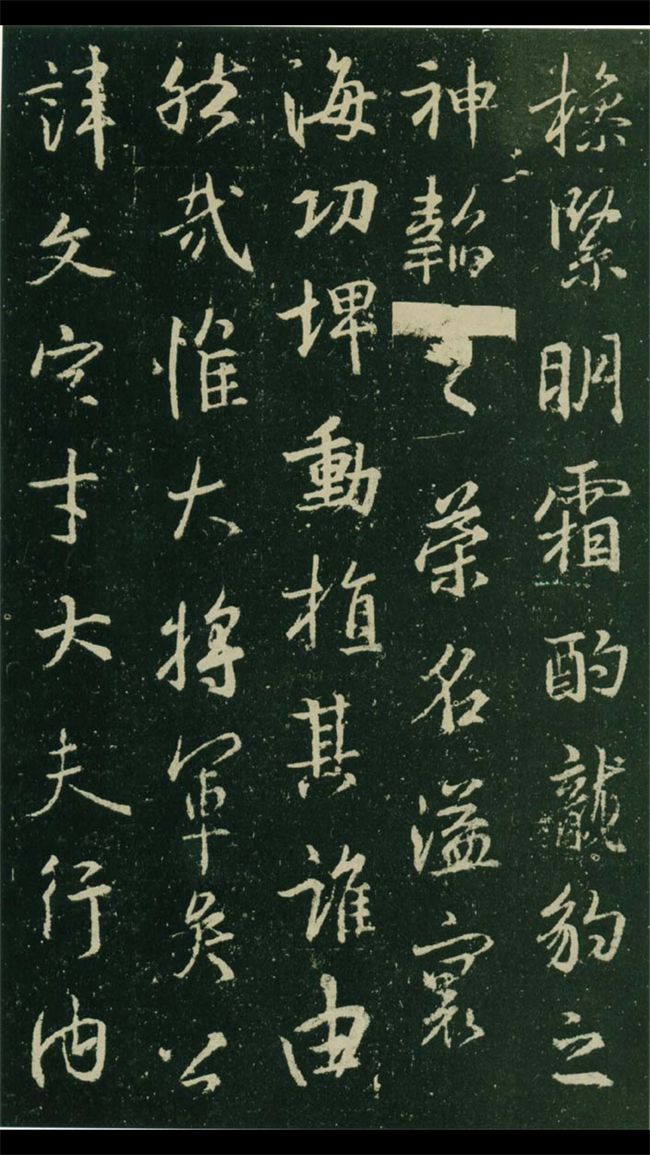 操緊明霜酌龍豹之
神韜之榮名溢寰
海功埤動植其誰由
然哉惟大將軍吳公
諱文字才大夫行内